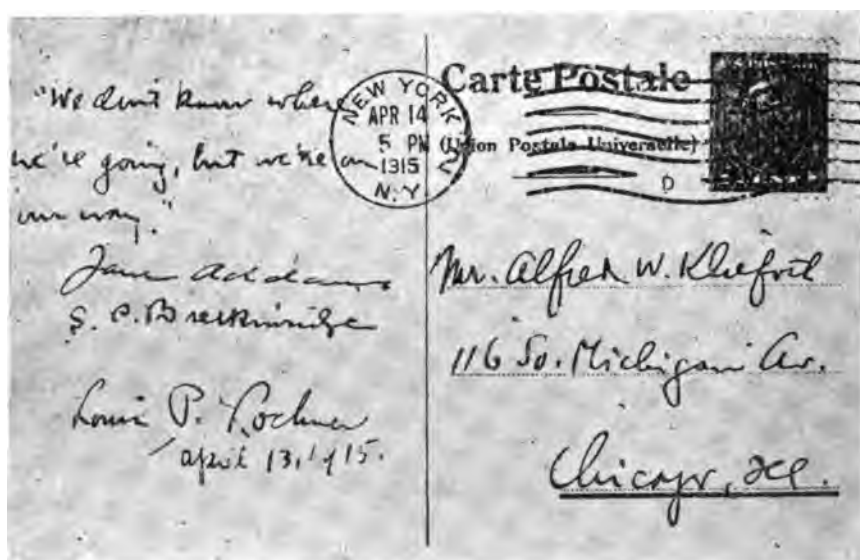 "We don't know where
we're going, but we're on
our way."
Jane Addams
S. P. Breckinridge
Louis P. Lochner
April 13, 1915.
NEW YORK, N.Y.
APR 14
5 PM
1915
Carte Postale
(Union Postale Universelle)
D
Mr. Alfred W. Kliefoth
116 So. Michigan Av.
Chicago, Ill.